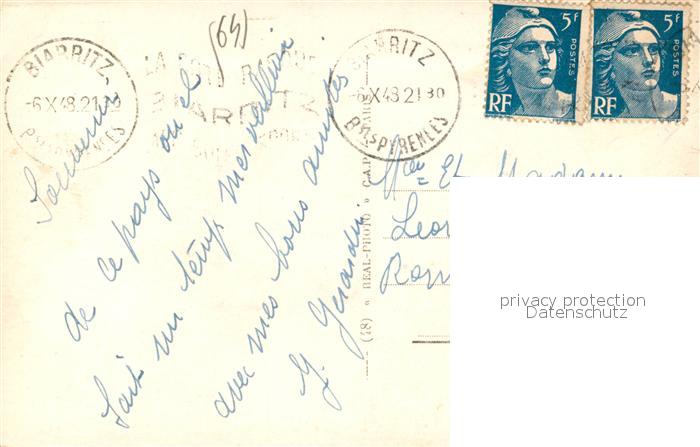 (64)
BIARRITZ
-6 X 48. 21
Bses PYRENEES
BIARRITZ
-6 X 48. 21 30
Bses PYRENEES
5F
POSTES
RF
5F
POSTES
RF
Souvenir
de ce pays ou il
fait un temps merveilleux
avec mes bons amitiés
G. Gerardin
(18) « REAL-PHOTO » C.A.P.
Mr Et Madame
Leon
Rom
privacy protection
Datenschutz